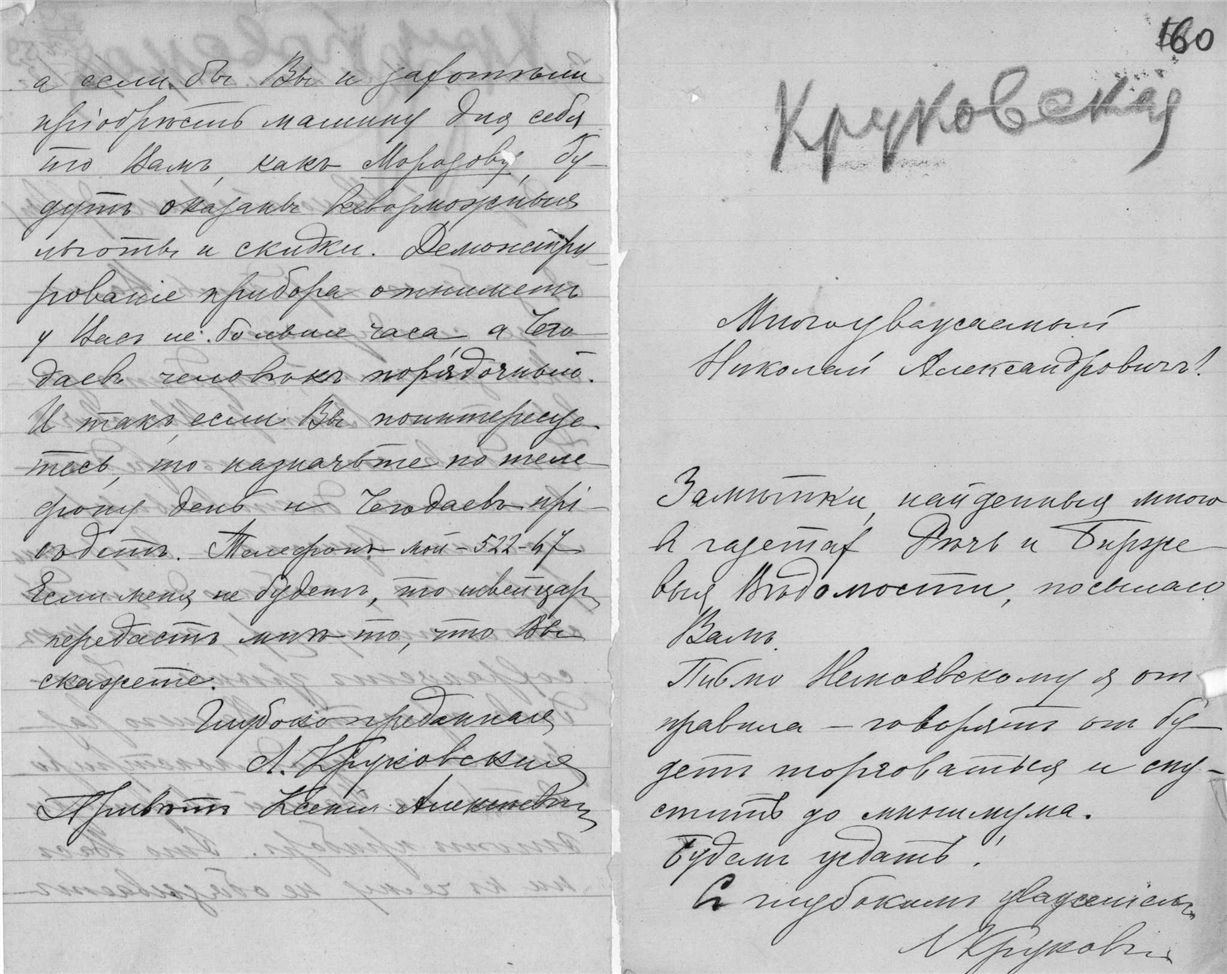 а если бы Вы и захотѣли
пріобрѣсть машину для себя
то Вамъ, какъ Морозову, бу-
дутъ оказаны всевозможныя
льготы и скидки. Демонстри-
рованіе прибора отниметъ
у Васъ не больше часа а Чего
даевъ человѣкъ порядочный.
И такъ, если Вы поинтересуе-
тесь, то назначьте по теле-
фону день и Чегодаевъ прі-
ѣдетъ. Телефонъ мой - 522-67
Если меня не будетъ, то швейцар
передастъ мнѣ то, что Вы
скажете.
Глубоко преданная
Л. Круковская
Привѣтъ Ксеніи Алексѣевнѣ
160
Круковская
Многоуважаемый
Николай Александровичъ!
Замѣтки, найденныя мною
в газетах Рѣчь и Бирже
выя Вѣдомости, посылаю
Вамъ.
Письмо Немоевскому я от
правила - говорятъ он бу-
детъ торговаться и спу-
ститъ до минимума.
Будемъ ждать!
С глубокимъ уваженіемъ
Л Круковск